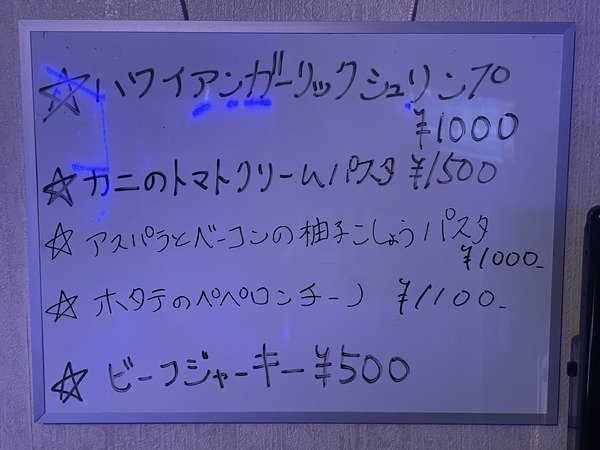 ☆ハワイアンガーリックシュリンプ
¥1000
☆カニのトマトクリームパスタ ¥1500
☆アスパラとベーコンの柚子こしょうパスタ
¥1000-
☆ホタテのペペロンチーノ ¥1100-
☆ビーフジャーキー ¥500